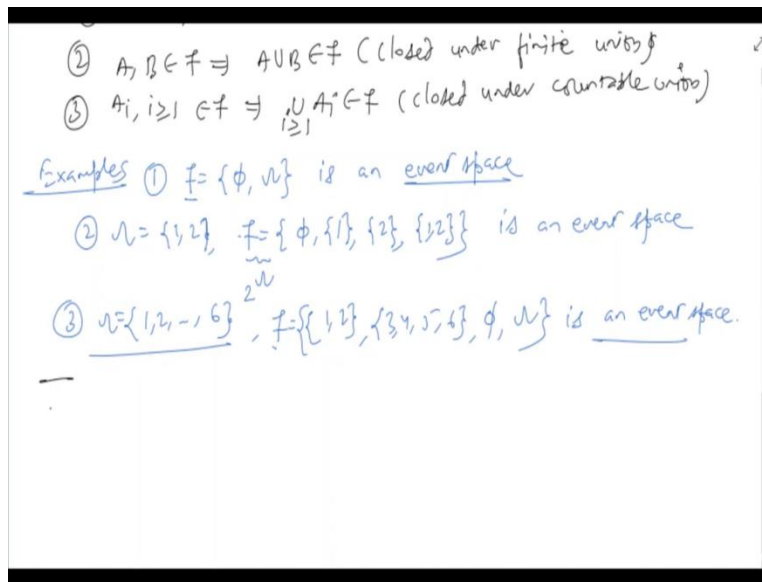 ② A, B ∈ f ⇒ A∪B ∈ f (closed under finite unions)
③ Ai, i≥1 ∈ f ⇒ ∪ i≥1 Ai ∈ f (closed under countable unions)
Examples ① f = {φ, Ω} is an event space
② Ω = {1,2}, f = {φ, {1}, {2}, {1,2}} is an event space
2^Ω
③ Ω = {1,2,-,6}, f = {{1,2}, {3,4,5,6}, φ, Ω} is an event space.